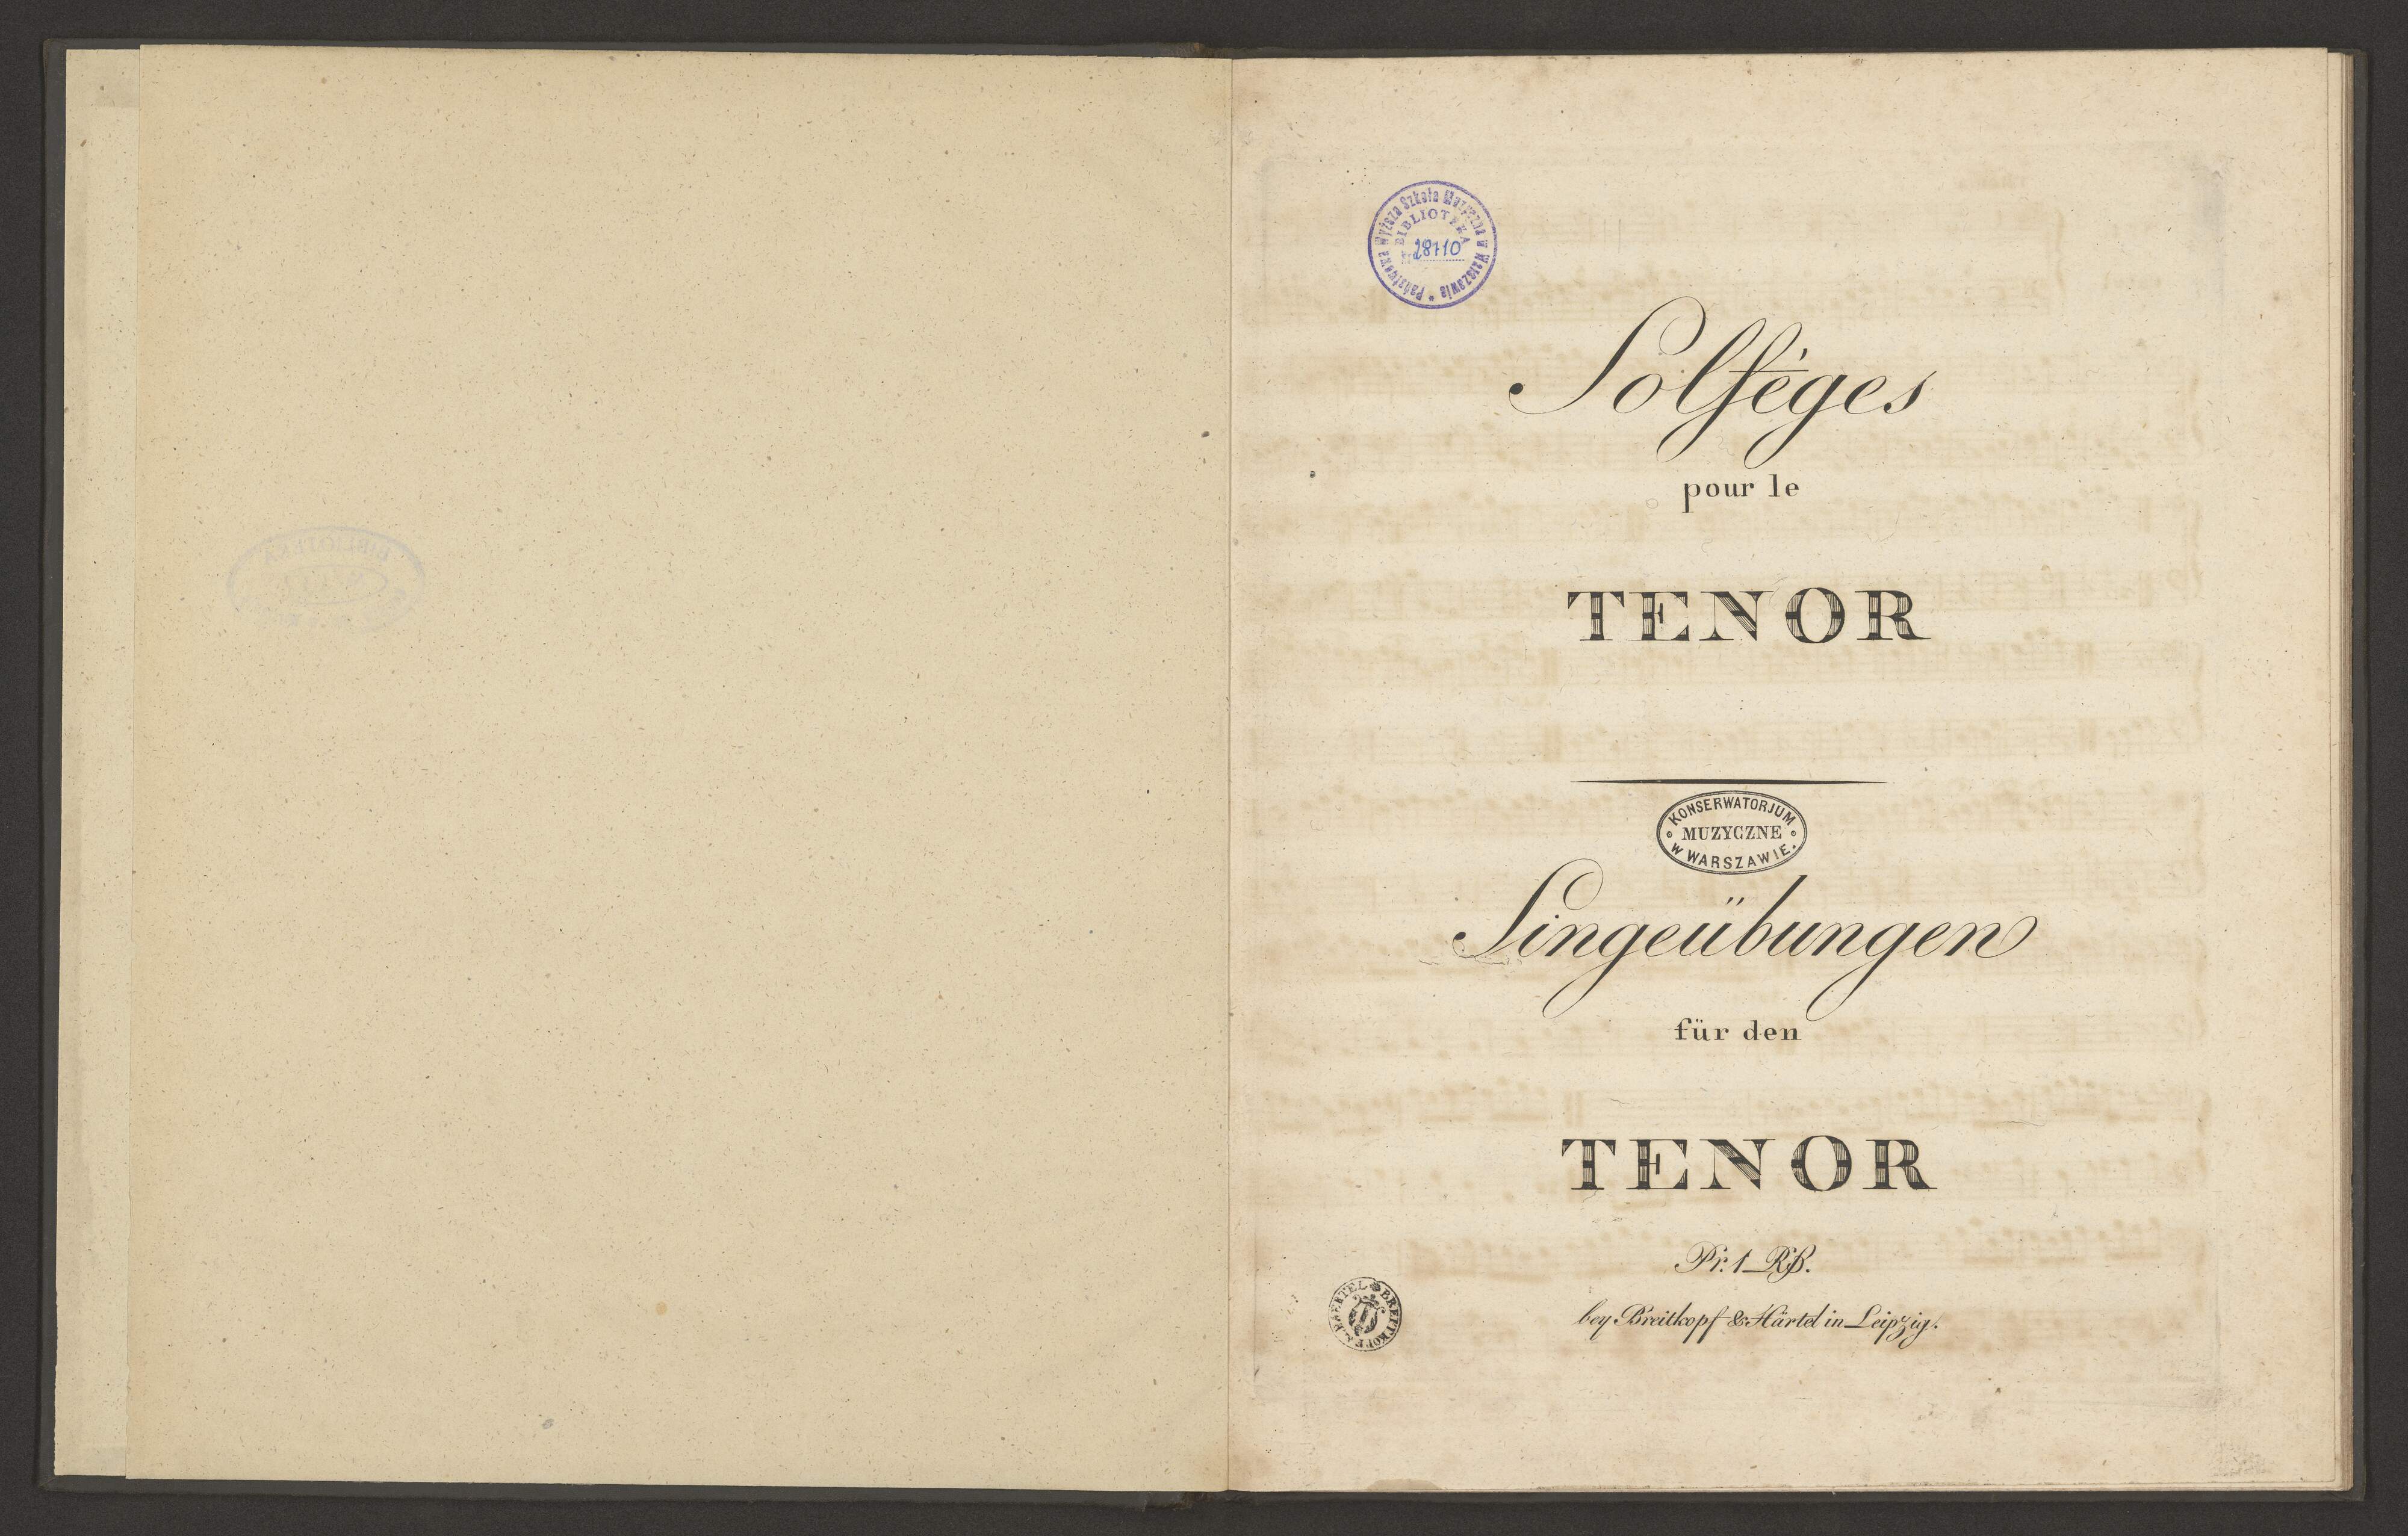 Państwowa Wyższa Szkoła Muzyczna w Warszawie *
BIBLIOTEKA
Nr 28110
Solféges
pour le
TENOR
KONSERWATORJUM
MUZYCZNE
W WARSZAWIE.
Singeübungen
für den
TENOR
Pr. 1 Rß.
BREITKOPF & HAERTEL
bey Breitkopf & Härtel in Leipzig.